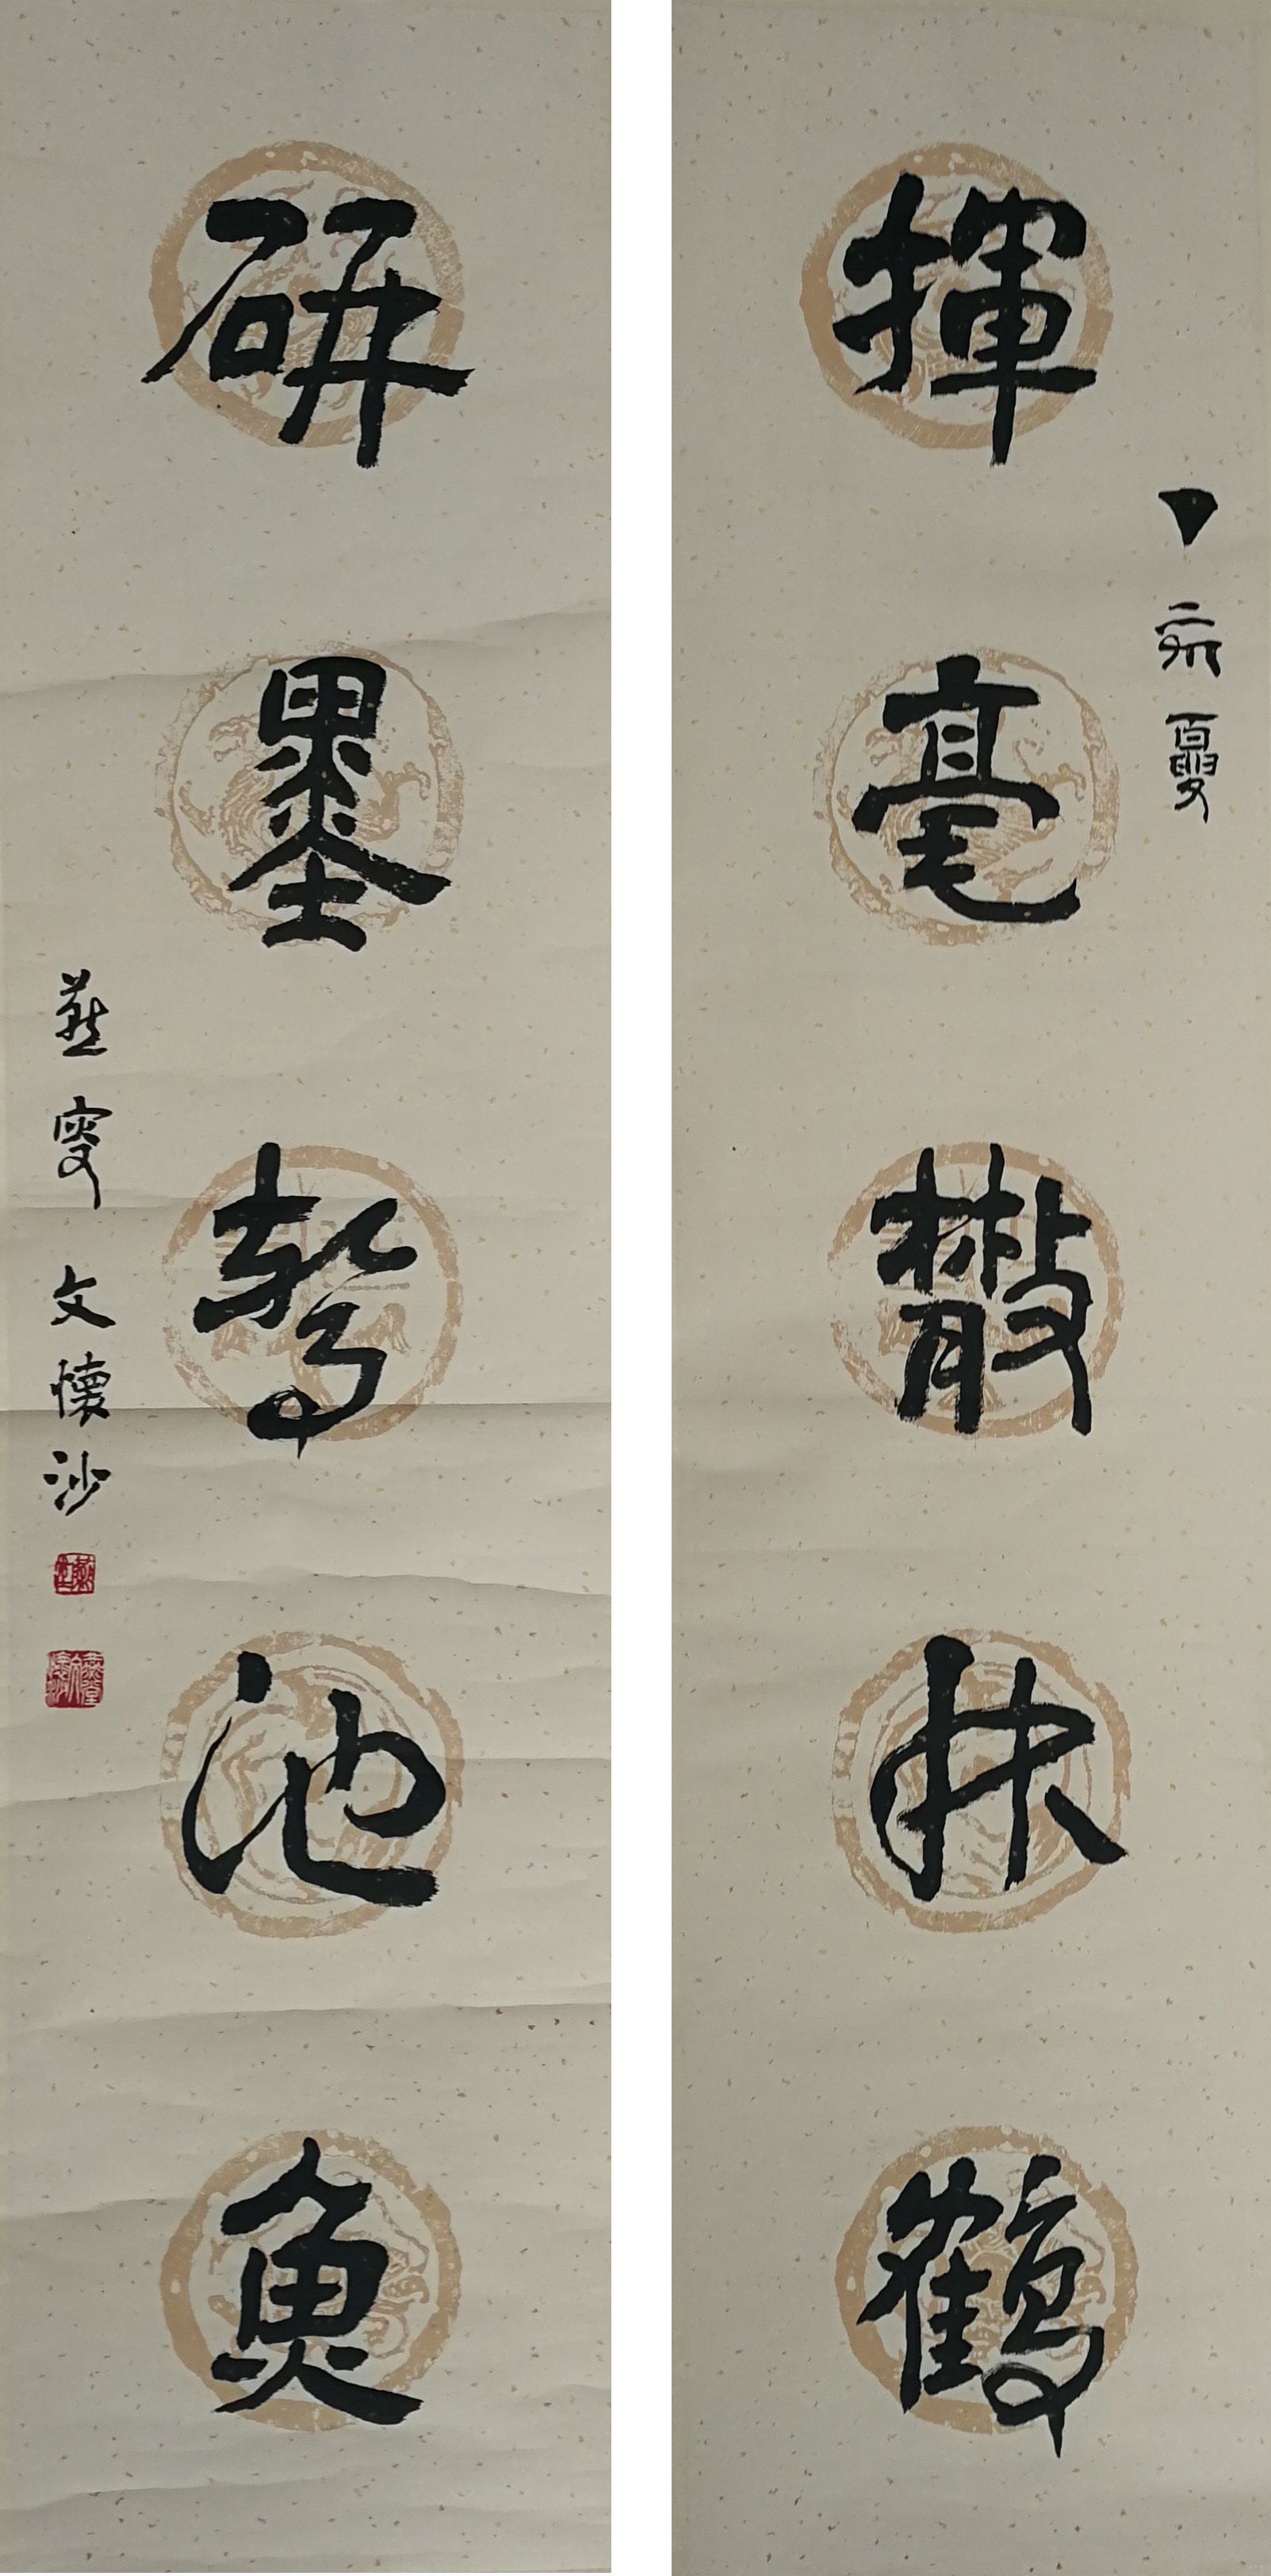 丁亥夏
揮毫散林鶴
研墨驚池魚
燕叟文懷沙